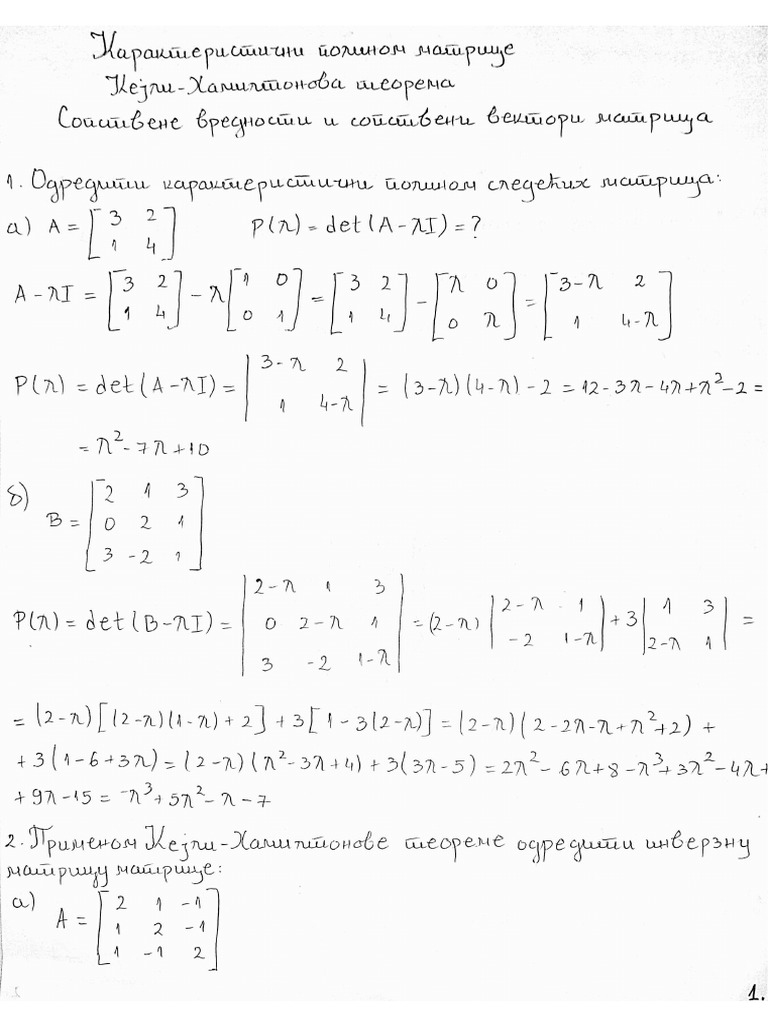 Карактеристични полином матрице
Кејли-Хамилтонова теорема
Сопствене вредности и сопствени вектори матрица
1. Одредити карактеристични полином следећих матрица:
а) A = [3 2; 1 4] P(λ) = det(A-λI) = ?
A-λI = [3 2; 1 4] - λ[1 0; 0 1] = [3 2; 1 4] - [λ 0; 0 λ] = [3-λ 2; 1 4-λ]
P(λ) = det(A-λI) = |3-λ 2; 1 4-λ| = (3-λ)(4-λ) - 2 = 12-3λ-4λ+λ²-2 =
= λ²-7λ+10
б) B = [2 1 3; 0 2 1; 3 -2 1]
P(λ) = det(B-λI) = |2-λ 1 3; 0 2-λ 1; 3 -2 1-λ| = (2-λ) |2-λ 1; -2 1-λ| + 3 |1 3; 2-λ 1| =
= (2-λ)[(2-λ)(1-λ)+2] + 3[1-3(2-λ)] = (2-λ)(2-2λ-λ+λ²+2) +
+3(1-6+3λ) = (2-λ)(λ²-3λ+4) + 3(3λ-5) = 2λ²-6λ+8-λ³+3λ²-4λ+
+9λ-15 = -λ³+5λ²-λ-7
2. Применом Кејли-Хамилтонове теореме одредити инверзну
матрицу матрице:
а) A = [2 1 -1; 1 2 -1; 1 -1 2]
1.